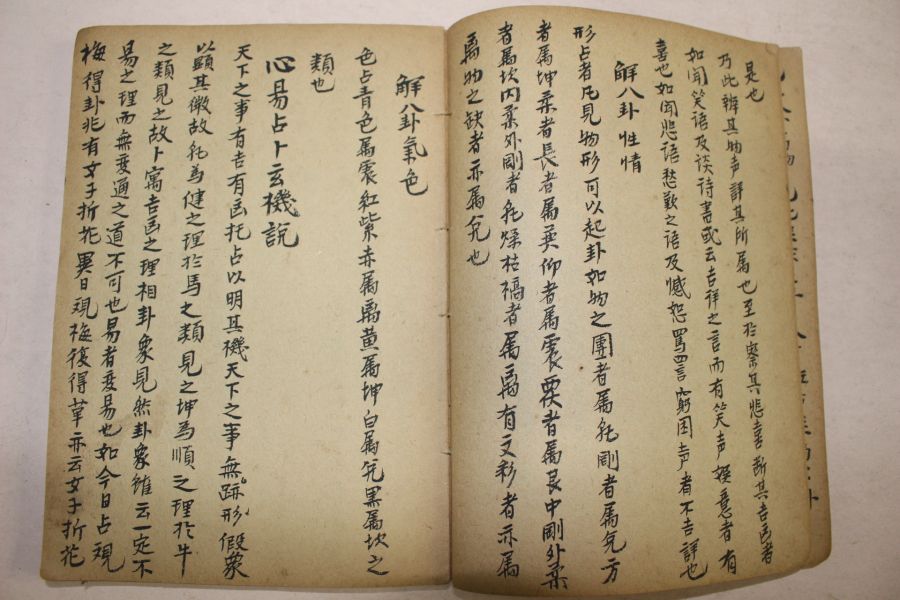 是也
乃此辨其物声詳其所属也至於察其悲喜断其吉凶者
如闻笑语及谈诗書或云吉祥之言而有笑声娱意者有
喜也如闻悲语愁歎之语及憾怨罵詈言窮困声者不吉詳也
解八卦性情
形占者凡見物形可以起卦如物之團者属乾剛者属兑方
者属坤柔者長者属巽仰者属震覆者属艮中剛外柔
者属坎内柔外剛者乾燥枯槁者属离有文彩者亦属
离物之缺者亦属兑也
解八卦氣色
色占青色属震紅紫赤属离黄属坤白属兑黑属坎之
類也
心易占卜玄機説
天下之事有吉有凶托占以明其機天下之事無跡形假象
以顕其微故乾為健之理於馬之類見之坤為順之理於牛
之類見之故卜寓吉凶之理相卦象見然卦象雖云一定不
易之理而無变通之道不可也易者变易也如今日占观
梅得卦兆有女子折花異日观梅復得革亦云女子折花